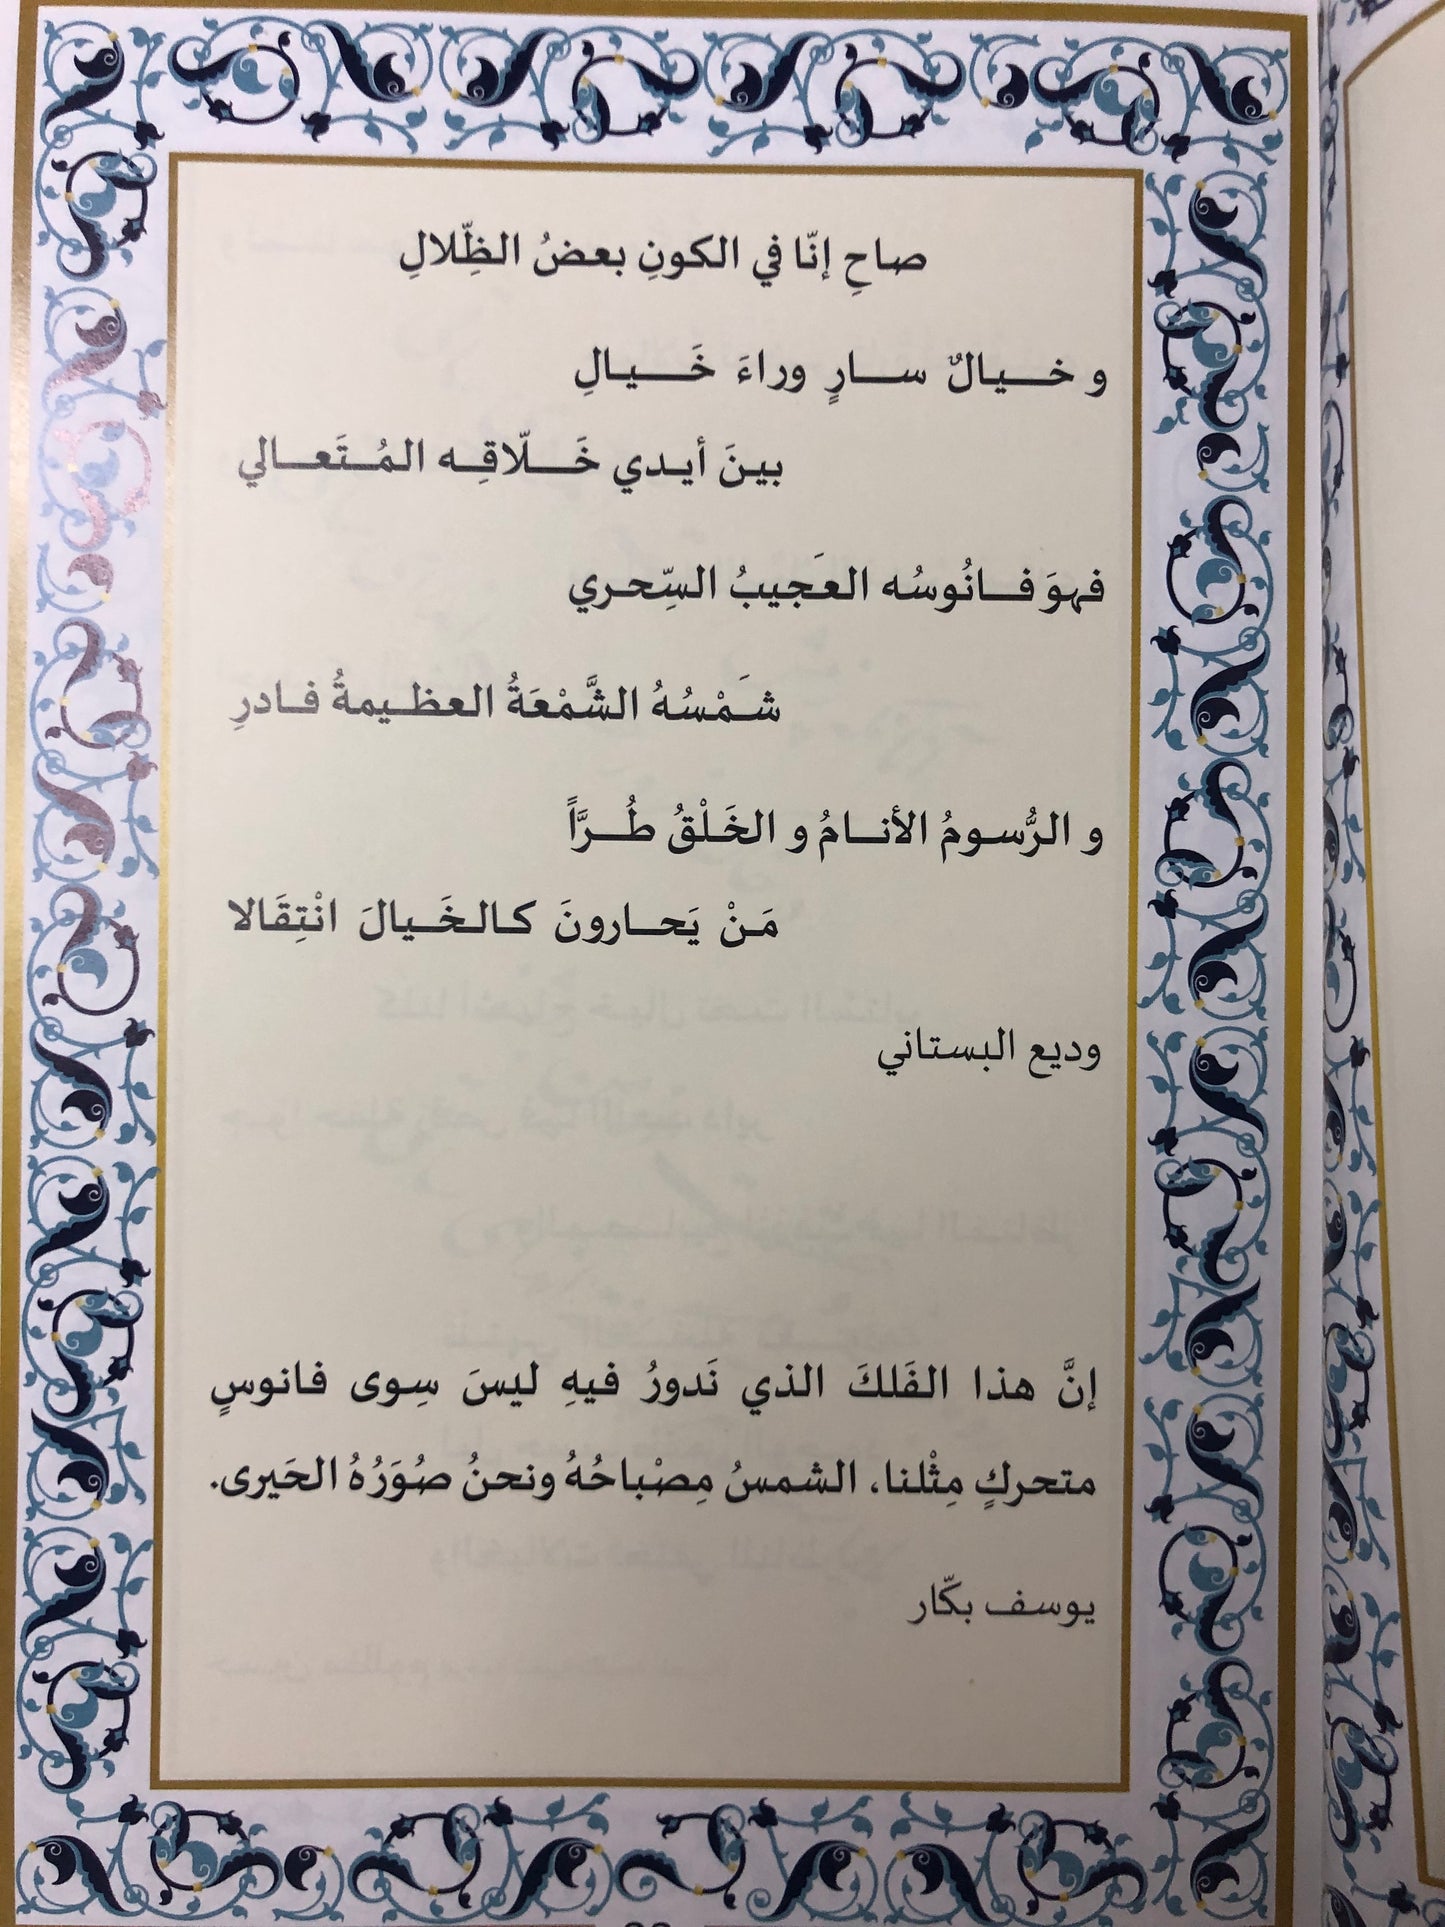 صاحِ إنّا في الكونِ بعضُ الظِّلالِ
و خـــيالٌ ســـارٍ وراءَ خَـــيالِ
بينَ أيـدي خَـــلّاقِـه المُــتَعـــالي
فهوَ فـــانُوسُه العَجيبُ السِّحري
شَـمْسُهُ الشَّمْعَةُ العظـيمةُ فـادرِ
و الرُّسـومُ الأنـــامُ و الخَلْقُ طُـــرَّاً
مَـنْ يَحـــارونَ كـالـخَــيالَ انْتِقَالا
وديع البستاني
إنَّ هذا الفَلكَ الذي نَدورُ فيهِ ليسَ سِوى فانوسٍ
متحركٍ مِثْلنا، الشمسُ مِصْباحُهُ ونحنُ صُوَرُهُ الحَيرى.
يوسف بكّار